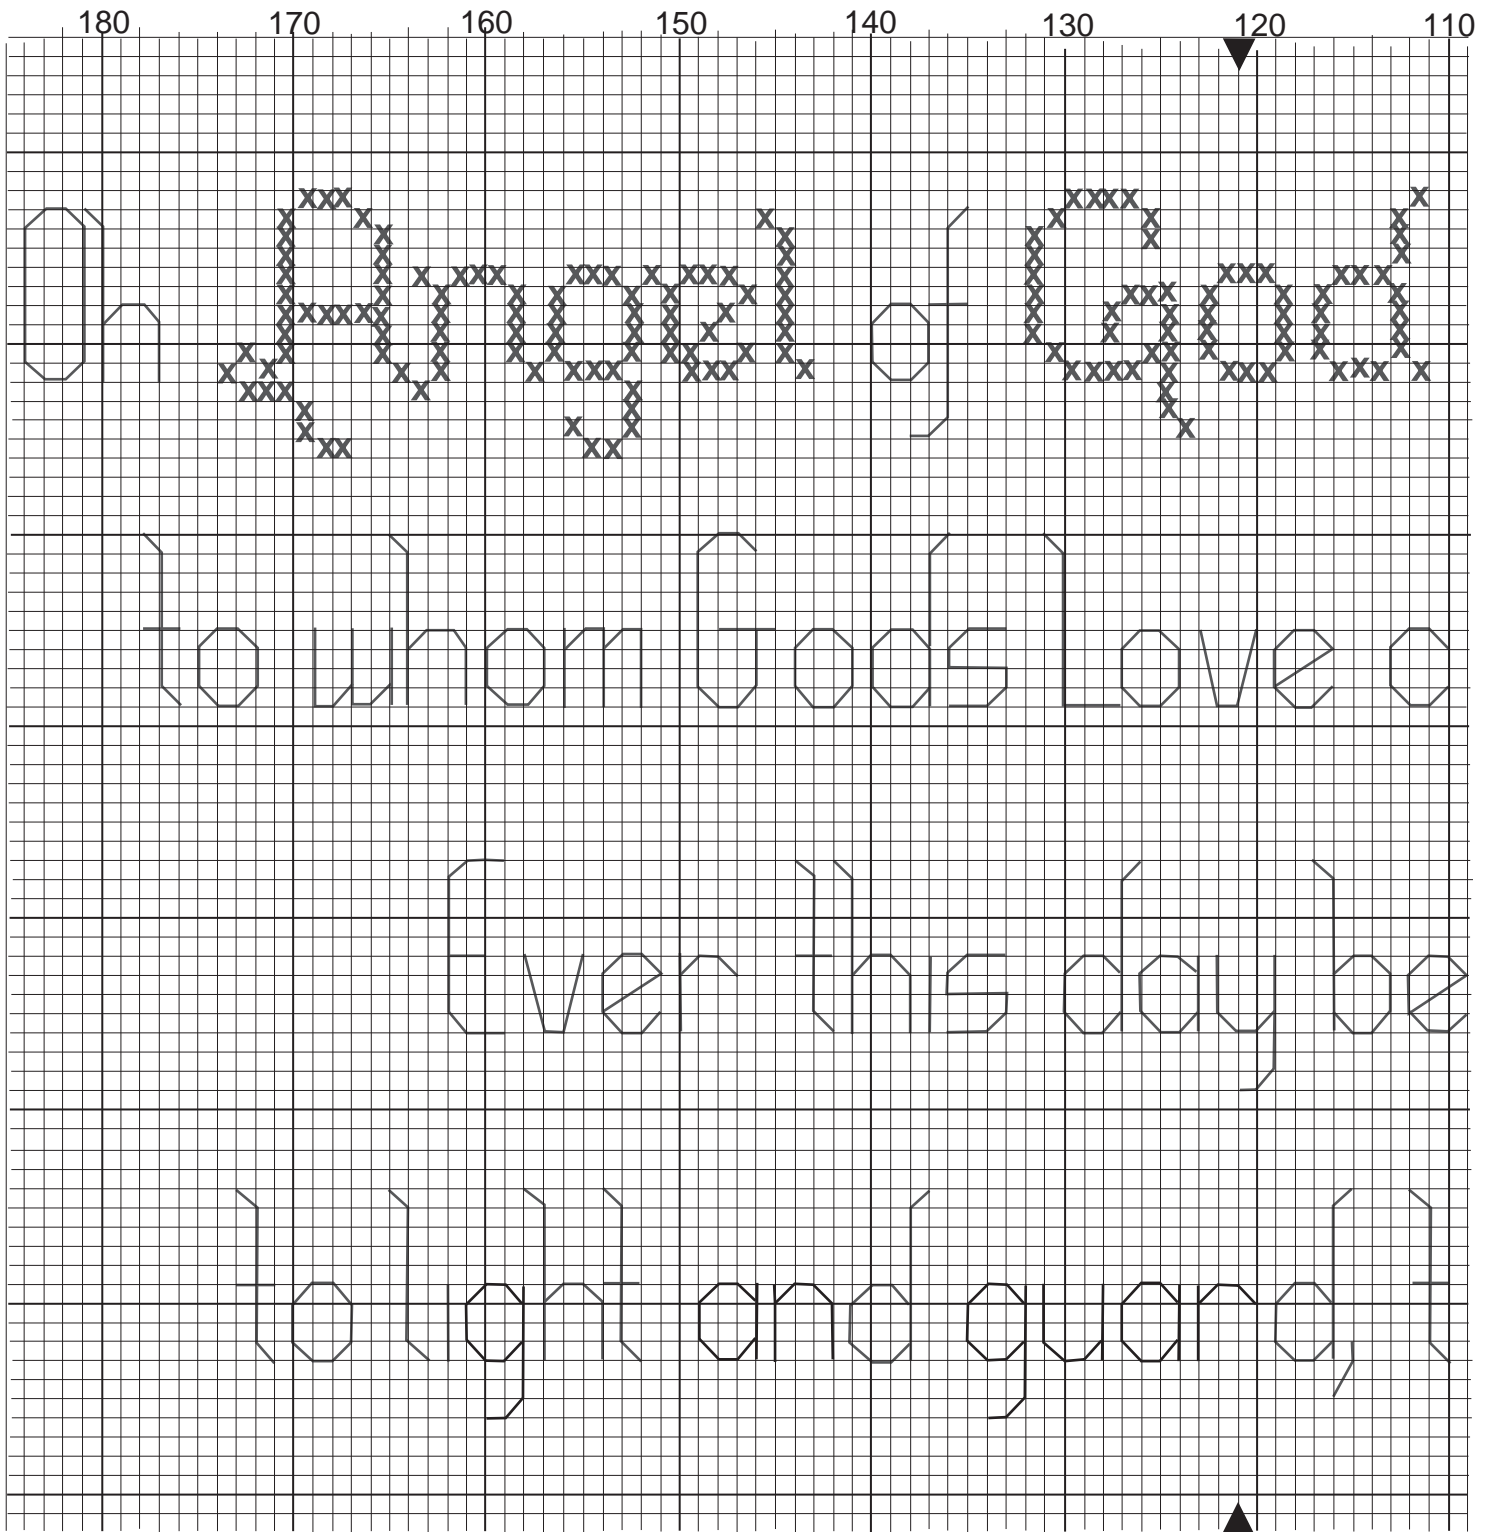 180 170 160 150 140 130 120 110
Oh Angel of God
to whom Gods Love c
Ever this day be
to light and guard, t